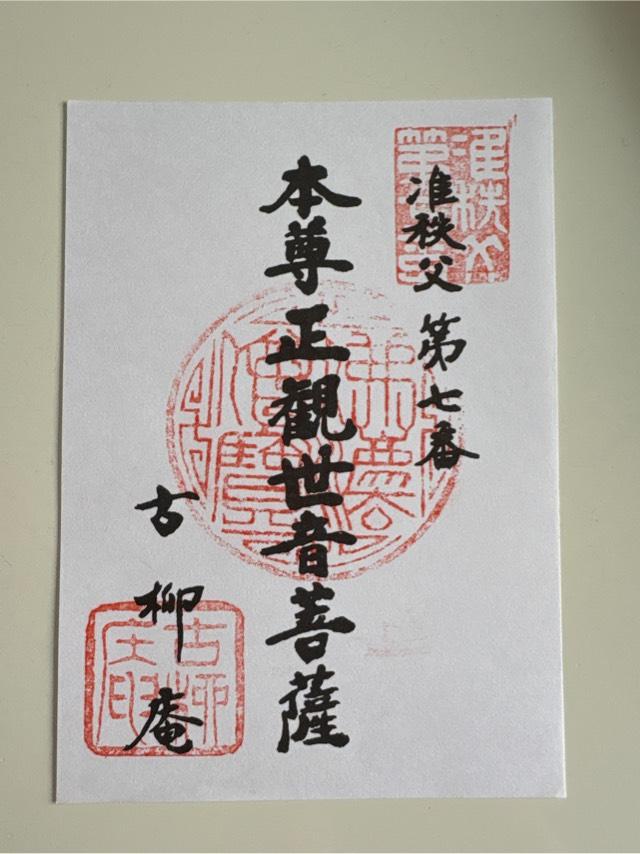 准秩父 第七番
本尊正観世音菩薩
古柳庵
古柳庵